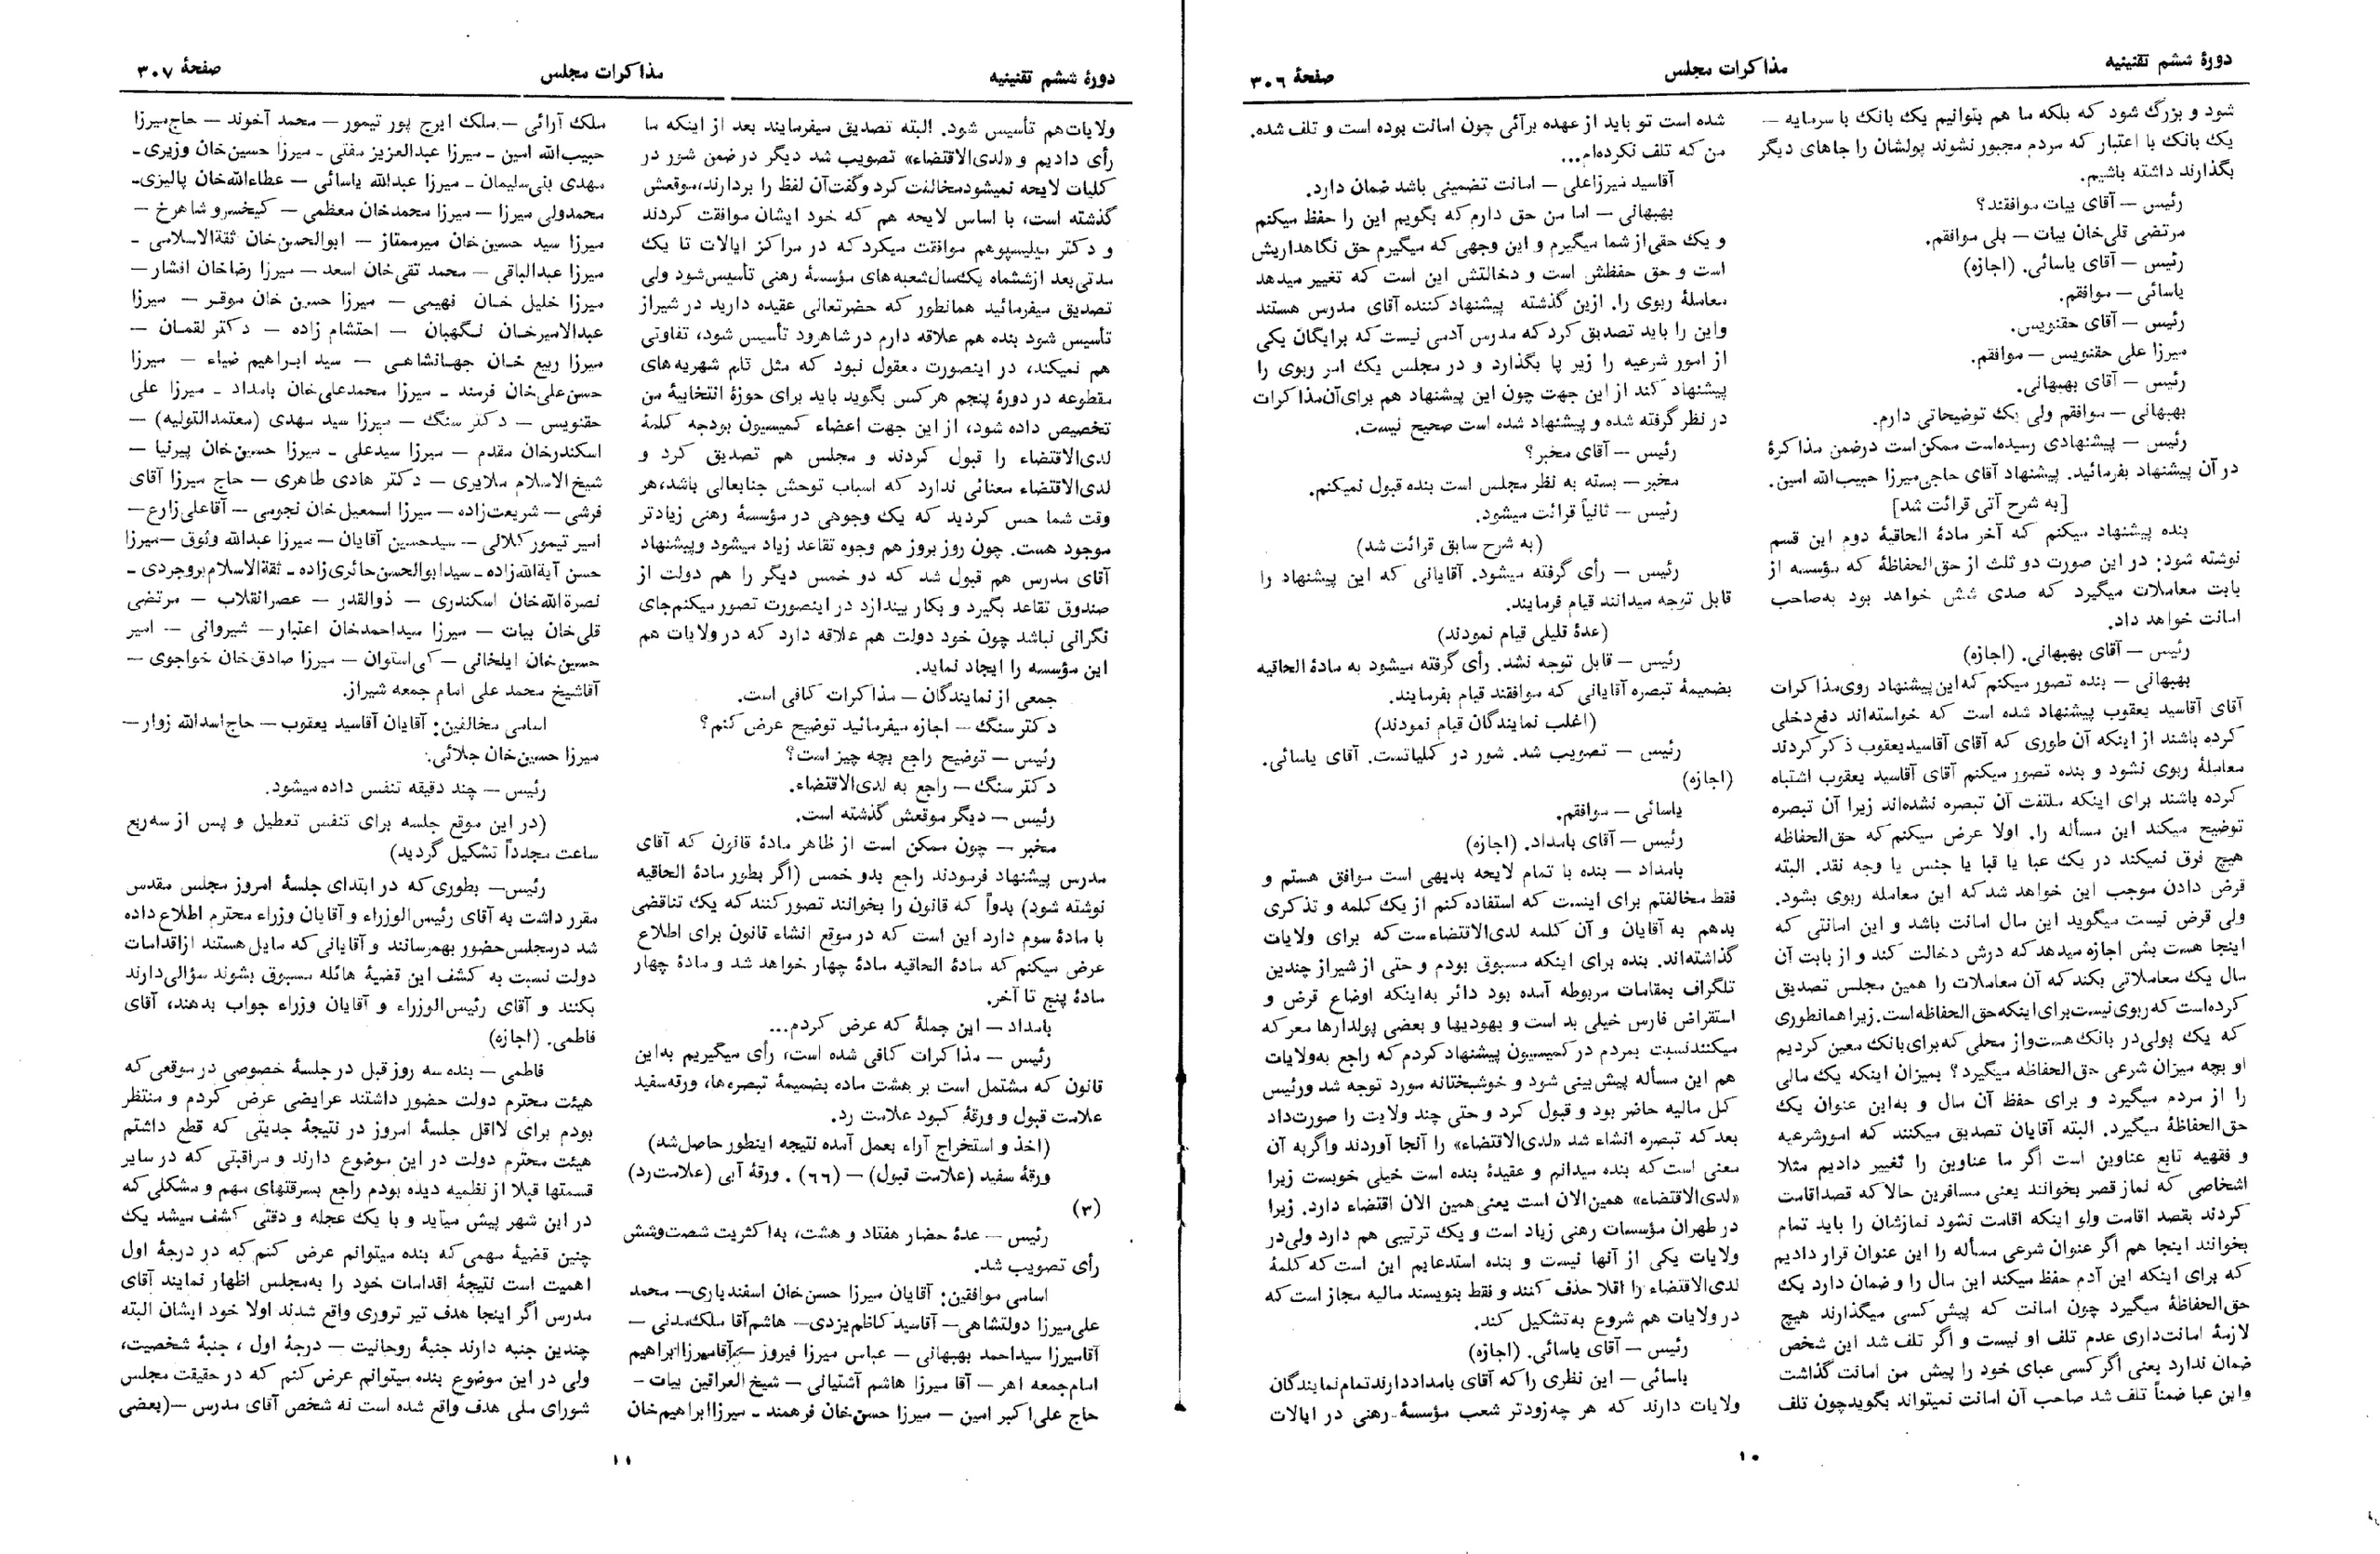 دورهٔ ششم تقنینیه
مذاکرات مجلس
صفحهٔ ۳۰۶
شود و بزرگ شود که بلکه ما هم بتوانیم یک بانک با سرمایه —
یک بانک با اعتبار که مردم مجبور نشوند پولشان را جاهای دیگر
بگذارند داشته باشیم.
رئیس — آقای بیات موافقند؟
مرتضی قلی‌خان بیات — بلی موافقم.
رئیس — آقای یاسائی. (اجازه)
یاسائی — موافقم.
رئیس — آقای حقنویس.
میرزا علی حقنویس — موافقم.
رئیس — آقای بهبهانی.
بهبهانی — موافقم ولی یک توضیحاتی دارم.
رئیس — پیشنهادی رسیده‌است ممکن است درضمن مذاکرهٔ
در آن پیشنهاد بفرمائید. پیشنهاد آقای حاجی‌میرزا حبیب‌الله امین.
[به شرح آتی قرائت شد]
بنده پیشنهاد میکنم که آخر مادهٔ الحاقیهٔ دوم این قسم
نوشته شود: در این صورت دو ثلث از حق‌الحفاظهٔ که مؤسسه از
بابت معاملات میگیرد که صدی شش خواهد بود به‌صاحب
امانت خواهد داد.
رئیس — آقای بهبهانی. (اجازه)
بهبهانی — بنده تصور میکنم که‌این پیشنهاد روی‌مذاکرات
آقای آقاسید یعقوب پیشنهاد شده است که خواسته‌اند دفع‌دخلی
کرده باشند از اینکه آن طوری که آقای آقاسیدیعقوب ذکر کردند
معاملهٔ ربوی نشود و بنده تصور میکنم آقای آقاسید یعقوب اشتباه
کرده باشند برای اینکه ملتفت آن تبصره نشده‌اند زیرا آن تبصره
توضیح میکند این مسأله را. اولا عرض میکنم که حق‌الحفاظه
هیچ فرق نمیکند در یک عبا یا قبا یا جنس یا وجه نقد. البته
قرض دادن موجب این خواهد شد که این معامله ربوی بشود.
ولی قرض نیست میگوید این مال امانت باشد و این امانتی که
اینجا هست بش اجازه میدهد که درش دخالت کند و از بابت آن
مال یک معاملاتی بکند که آن معاملات را همین مجلس تصدیق
کرده‌است که ربوی نیست برای اینکه حق‌الحفاظه‌است. زیرا همانطوری
که یک پولی‌در بانک هست‌واز محلی که برای بانک معین کردیم
او بچه میزان شرعی حق‌الحفاظه میگیرد؟ بمیزان اینکه یک مالی
را از مردم میگیرد و برای حفظ آن مال و به‌این عنوان یک
حق‌الحفاظهٔ میگیرد. البته آقایان تصدیق میکنند که امورشرعیه
و فقهیه تابع عناوین است اگر ما عناوین را تغییر دادیم مثلا
اشخاصی که نماز قصر بخوانند یعنی مسافرین حالا که قصداقامت
کردند بقصد اقامت ولو اینکه اقامت نشود نمازشان را باید تمام
بخوانند اینجا هم اگر عنوان شرعی مسأله را این عنوان قرار دادیم
که برای اینکه این آدم حفظ میکند این مال را و ضمان دارد یک
حق‌الحفاظهٔ میگیرد چون امانت که پیش کسی میگذارند هیچ
لازمهٔ امانت‌داری عدم تلف او نیست و اگر تلف شد این شخص
ضمان ندارد یعنی اگر کسی عبای خود را پیش من امانت گذاشت
واین عبا ضمناً تلف شد صاحب آن امانت نمیتواند بگویدچون تلف
شده است تو باید از عهده برآئی چون امانت بوده است و تلف شده.
من که تلف نکرده‌ام...
آقاسید میرزاعلی — امانت تضمینی باشد ضمان دارد.
بهبهانی — اما من حق دارم که بگویم این را حفظ میکنم
و یک حقی‌از شما میگیرم و این وجهی که میگیرم حق نگاهداریش
است و حق حفظش است و دخالتش این است که تغییر میدهد
معاملهٔ ربوی را. ازین گذشته پیشنهاد کننده آقای مدرس هستند
واین را باید تصدیق کرد که مدرس آدمی نیست که برایگان یکی
از امور شرعیه را زیر پا بگذارد و در مجلس یک امر ربوی را
پیشنهاد کند از این جهت چون این پیشنهاد هم برای‌آن‌مذاکرات
در نظر گرفته شده و پیشنهاد شده است صحیح نیست.
رئیس — آقای مخبر؟
مخبر — بسته به نظر مجلس است بنده قبول نمیکنم.
رئیس — ثانیاً قرائت میشود.
(به شرح سابق قرائت شد)
رئیس — رأی گرفته میشود. آقایانی که این پیشنهاد را
قابل توجه میدانند قیام فرمایند.
(عدهٔ قلیلی قیام نمودند)
رئیس — قابل توجه نشد. رأی گرفته میشود به مادهٔ الحاقیه
بضمیمهٔ تبصره آقایانی که موافقند قیام بفرمایند.
(اغلب نمایندگان قیام نمودند)
رئیس — تصویب شد. شور در کلیاتست. آقای یاسائی.
(اجازه)
یاسائی — موافقم.
رئیس — آقای بامداد. (اجازه)
بامداد — بنده با تمام لایحه بدیهی است موافق هستم و
فقط مخالفتم برای اینست که استفاده کنم از یک کلمه و تذکری
بدهم به آقایان و آن کلمه لدی‌الاقتضاءست که برای ولایات
گذاشته‌اند. بنده برای اینکه مسبوق بودم و حتی از شیراز چندین
تلگراف بمقامات مربوطه آمده بود دائر به‌اینکه اوضاع قرض و
استقراض فارس خیلی بد است و یهودیها و بعضی پولدارها معرکه
میکنندنسبت بمردم در کمیسیون پیشنهاد کردم که راجع به‌ولایات
هم این مسأله پیش‌بینی شود و خوشبختانه مورد توجه شد ورئیس
کل مالیه حاضر بود و قبول کرد و حتی چند ولایت را صورت‌داد
بعد که تبصره انشاء شد «لدی‌الاقتضاء» را آنجا آوردند واگر به آن
معنی است که بنده میدانم و عقیدهٔ بنده است خیلی خوبست زیرا
«لدی‌الاقتضاء» همین‌الان است یعنی همین الان اقتضاء دارد. زیرا
در طهران مؤسسات رهنی زیاد است و یک ترتیبی هم دارد ولی‌در
ولایات یکی از آنها نیست و بنده استدعایم این است که کلمهٔ
لدی‌الاقتضاء را اقلا حذف کنند و فقط بنویسند مالیه مجاز است که
در ولایات هم شروع به‌تشکیل کند.
رئیس — آقای یاسائی. (اجازه)
یاسائی — این نظری را که آقای بامداددارندتمام‌نمایندگان
ولایات دارند که هر چه‌زودتر شعب مؤسسهٔ رهنی در ایالات
۱۰
دورهٔ ششم تقنینیه
مذاکرات مجلس
صفحهٔ ۳۰۷
ولایات‌هم تأسیس شود. البته تصدیق میفرمایند بعد از اینکه ما
رأی دادیم و «لدی‌الاقتضاء» تصویب شد دیگر در ضمن شور در
کلیات لایحه نمیشودمخالفت کرد وگفت‌آن لفظ را بردارند،موقعش
گذشته است، با اساس لایحه هم که خود ایشان موافقت کردند
و دکتر میلیسپوهم موافقت میکرد که در مراکز ایالات تا یک
مدتی‌بعد ازششماه یکسال‌شعبه‌های مؤسسهٔ رهنی تأسیس‌شود ولی
تصدیق میفرمائید همانطور که حضرتعالی عقیده دارید در شیراز
تأسیس شود بنده هم علاقه دارم در شاهرود تأسیس شود، تفاوتی
هم نمیکند، در اینصورت معقول نبود که مثل تام شهریه‌های
مقطوعه در دورهٔ پنجم هر کس بگوید باید برای حوزهٔ انتخابیهٔ من
تخصیص داده شود، از این جهت اعضاء کمیسیون بودجه کلمهٔ
لدی‌الاقتضاء را قبول کردند و مجلس هم تصدیق کرد و
لدی‌الاقتضاء معنائی ندارد که اسباب توحش جنابعالی باشد،هر
وقت شما حس کردید که یک وجوهی در مؤسسهٔ رهنی زیادتر
موجود هست. چون روز بروز هم وجوه تقاعد زیاد میشود وپیشنهاد
آقای مدرس هم قبول شد که دو خمس دیگر را هم دولت از
صندوق تقاعد بگیرد و بکار بیندازد در اینصورت تصور میکنم‌جای
نگرانی نباشد چون خود دولت هم علاقه دارد که در ولایات هم
این مؤسسه را ایجاد نماید.
جمعی از نمایندگان — مذاکرات کافی است.
دکتر سنگ — اجازه میفرمائید توضیح عرض کنم؟
رئیس — توضیح راجع بچه چیز است؟
دکتر سنگ — راجع به لدی‌الاقتضاء.
رئیس — دیگر موقعش گذشته است.
مخبر — چون ممکن است از ظاهر مادهٔ قانون که آقای
مدرس پیشنهاد فرمودند راجع بدو خمس (اگر بطور مادهٔ الحاقیه
نوشته شود) بدواً که قانون را بخوانند تصور کنند که یک تناقضی
با مادهٔ سوم دارد این است که در موقع انشاء قانون برای اطلاع
عرض میکنم که مادهٔ الحاقیه مادهٔ چهار خواهد شد و مادهٔ چهار
مادهٔ پنج تا آخر.
بامداد — این جملهٔ که عرض کردم...
رئیس — مذاکرات کافی شده است، رأی میگیریم به‌این
قانون که مشتمل است بر هشت ماده بضمیمهٔ تبصره‌ها، ورقه‌سفید
علامت قبول و ورقهٔ کبود علامت رد.
(اخذ و استخراج آراء بعمل آمده نتیجه اینطور حاصل‌شد)
ورقهٔ سفید (علامت قبول) — (۶۶) . ورقهٔ آبی (علامت‌رد)
(۳)
رئیس — عدهٔ حضار هفتاد و هشت، به‌اکثریت شصت‌وشش
رأی تصویب شد.
اسامی موافقین: آقایان میرزا حسن‌خان اسفندیاری — محمد
علی‌میرزا دولتشاهی — آقاسید کاظم یزدی — هاشم‌آقا ملک‌مدنی —
آقامیرزا سیداحمد بهبهانی — عباس میرزا فیروز — آقامیرزاابراهیم
امام‌جمعه اهر — آقا میرزا هاشم آشتیانی — شیخ العراقین بیات —
حاج علی‌اکبر امین — میرزا حسن‌خان فرهمند — میرزا ابراهیم‌خان
ملک آرائی — ملک ایرج پور تیمور — محمد آخوند — حاج‌میرزا
حبیب‌الله امین — میرزا عبدالعزیز مفتی — میرزا حسین‌خان وزیری —
مهدی بنی‌سلیمان — میرزا عبدالله یاسائی — عطاءالله‌خان پالیزی —
محمدولی میرزا — میرزا محمدخان معظمی — کیخسرو شاهرخ —
میرزا سید حسین‌خان میرممتاز — ابوالحسن‌خان ثقةالاسلامی —
میرزا عبدالباقی — محمد تقی‌خان اسعد — میرزا رضاخان افشار —
میرزا خلیل خان فهیمی — میرزا حسین خان موقر — میرزا
عبدالامیرخان نگهبان — احتشام زاده — دکتر لقمان —
میرزا ربیع خان جهانشاهی — سید ابراهیم ضیاء — میرزا
حسن‌علی‌خان فرمند — میرزا محمدعلی‌خان بامداد — میرزا علی
حقنویس — دکتر سنگ — میرزا سید مهدی (معتمدالتولیه) —
اسکندرخان مقدم — میرزا سیدعلی — میرزا حسین‌خان پیرنیا —
شیخ‌الاسلام ملایری — دکتر هادی طاهری — حاج میرزا آقای
فرشی — شریعت‌زاده — میرزا اسمعیل‌خان نجومی — آقاعلی‌زارع —
امیر تیمور کلالی — سیدحسین آقایان — میرزا عبدالله وثوق — میرزا
حسن آیةالله‌زاده — سیدابوالحسن‌حائری‌زاده — ثقةالاسلام‌بروجردی —
نصرةالله‌خان اسکندری — ذوالقدر — عصرانقلاب — مرتضی
قلی‌خان بیات — میرزا سیداحمدخان اعتبار — شیروانی — امیر
حسین‌خان ایلخانی — کی‌استوان — میرزا صادق‌خان خواجوی —
آقاشیخ محمد علی امام جمعه شیراز.
اسامی مخالفین: آقایان آقاسید یعقوب — حاج‌اسدالله زوار —
میرزا حسین‌خان جلائی.
رئیس — چند دقیقه تنفس داده میشود.
(در این موقع جلسه برای تنفس تعطیل و پس از سه‌ربع
ساعت مجدداً تشکیل گردید)
رئیس — بطوری که در ابتدای جلسهٔ امروز مجلس مقدس
مقرر داشت به آقای رئیس‌الوزراء و آقایان وزراء محترم اطلاع داده
شد درمجلس حضور بهمرسانند و آقایانی که مایل هستند ازاقدامات
دولت نسبت به کشف این قضیهٔ هائله مسبوق بشوند سؤالی‌دارند
بکنند و آقای رئیس‌الوزراء و آقایان وزراء جواب بدهند، آقای
فاطمی. (اجازه)
فاطمی — بنده سه روز قبل در جلسهٔ خصوصی در موقعی که
هیئت محترم دولت حضور داشتند عرایضی عرض کردم و منتظر
بودم برای لااقل جلسهٔ امروز در نتیجهٔ جدیتی که قطع داشتم
هیئت محترم دولت در این موضوع دارند و مراقبتی که در سایر
قسمتها قبلا از نظمیه دیده بودم راجع بسرقتهای مهم و مشکلی که
در این شهر پیش میآید و با یک عجله و دقتی کشف میشد یک
چنین قضیهٔ مهمی که بنده میتوانم عرض کنم که در درجهٔ اول
اهمیت است نتیجهٔ اقدامات خود را به‌مجلس اظهار نمایند آقای
مدرس اگر اینجا هدف تیر تروری واقع شدند اولا خود ایشان البته
چندین جنبه دارند جنبهٔ روحانیت — درجهٔ اول ، جنبهٔ شخصیت،
ولی در این موضوع بنده میتوانم عرض کنم که در حقیقت مجلس
شورای ملی هدف واقع شده است نه شخص آقای مدرس — (بعضی
۱۱